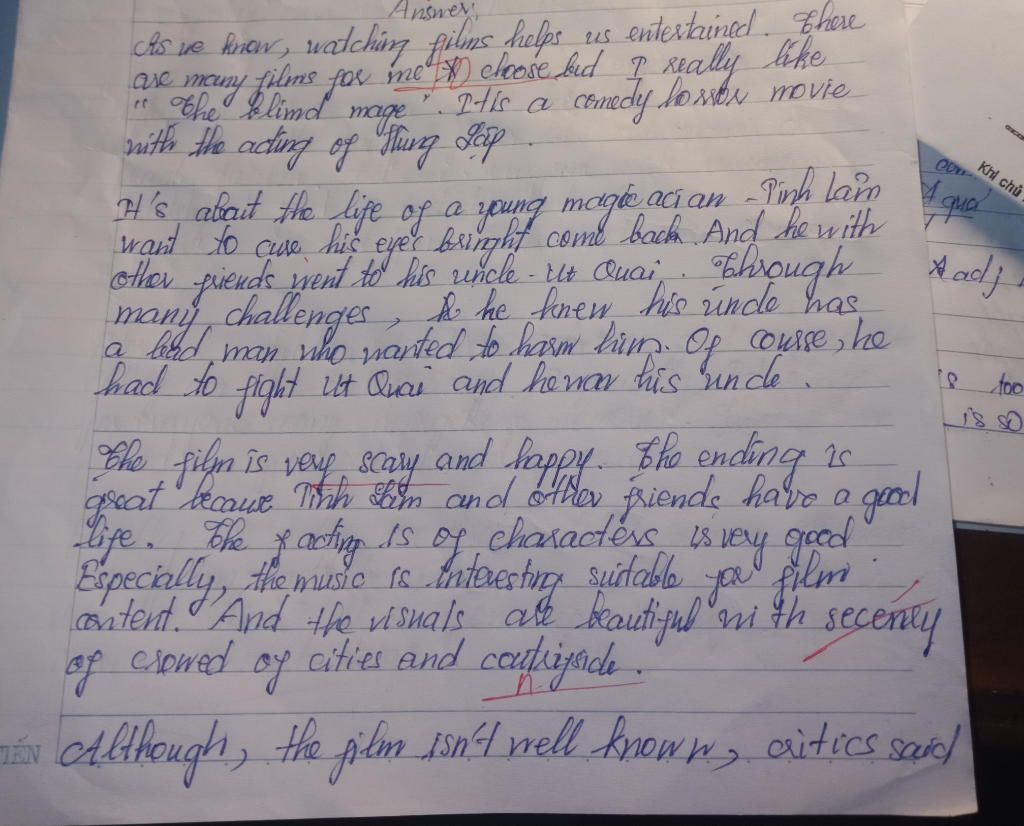 Answer:
As we know, watching films helps us entertained. There
are many films for me to choose but I really like
"The blind mage". It is a comedy horror movie
with the acting of Hùng Lập.
It's about the life of a young magic acian - Tinh Lâm
want to cure his eyes bringht come back. And he with
other friends went to his uncle - Út Quai. Through
many challenges, he knew his uncle was
a bad man who wanted to harm him. Of course, he
had to fight Út Quai and he won his uncle.
The film is very scary and happy. The ending is
great because Tinh Lâm and other friends have a good
life. The acting is of characters is very good
Especially, the music is interesting suitable for film
content. And the visuals are beautiful with secenery
of crowed of cities and coutryside.
n
Although, the film isn't well known, critics said
TIẾN
Khi chủ
quá
adj
too
is so